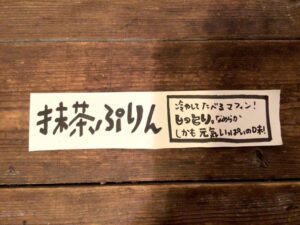 抹茶ぷりん
冷やしてたべるマフィン!
しっとり、なめらか
しかも元気いっぱいの味!